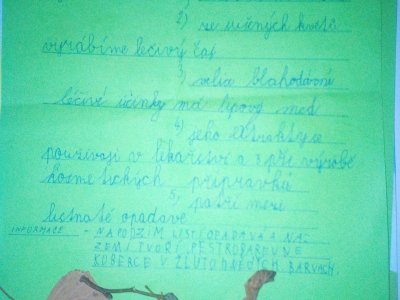 2) ze sušených květů
vyrábíme léčivý čaj
3) velice blahodárné
léčivé účinky má lipový med
4) jeho extrakty se
používají v lékařství a při výrobě
kosmetických přípravků
5) patří mezi
listnaté opadavé
INFORMACE - NA PODZIM LISTÍ OPADÁVÁ A NA
ZEMI TVOŘÍ PESTROBAREVNÉ
KOBERCE V ŽLUTOHNĚDÝCH BARVÁCH.